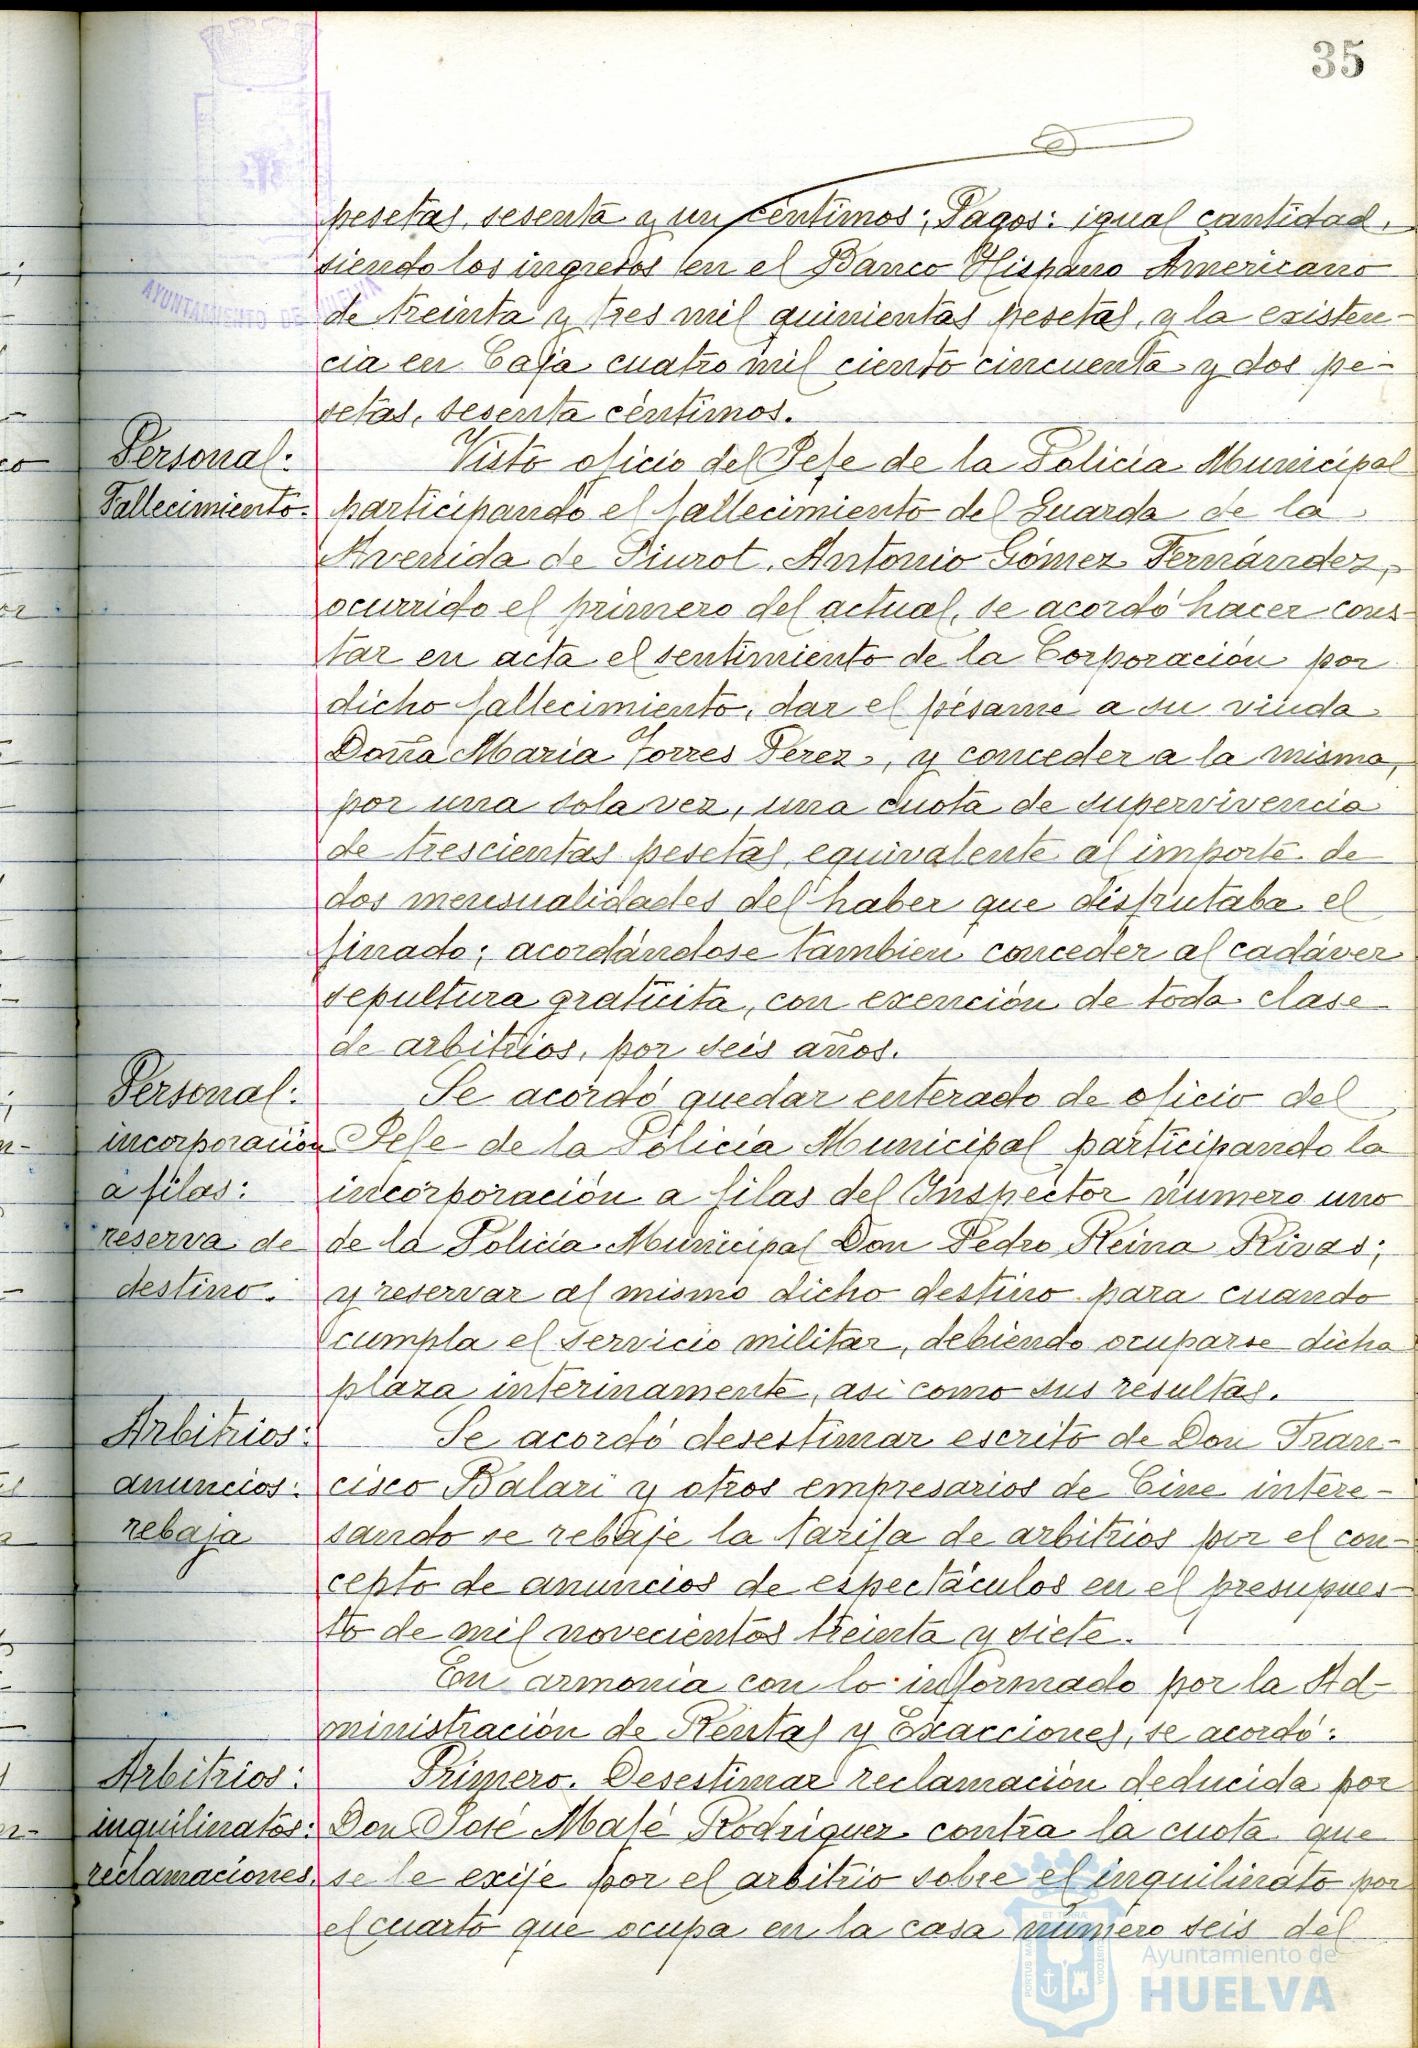 35
pesetas, sesenta y un céntimos; Pagos: igual cantidad,
siendo los ingresos en el Banco Hispano Americano
de treinta y tres mil quinientas pesetas, y la existen-
cia en Caja cuatro mil ciento cincuenta y dos pe-
setas, sesenta céntimos.
Personal:
Fallecimiento.
Visto oficio del Jefe de la Policía Municipal
participando el fallecimiento del Guarda de la
Avenida de Piurot, Antonio Gómez Fernández,
ocurrido el primero del actual, se acordó hacer cons-
tar en acta el sentimiento de la Corporación por
dicho fallecimiento, dar el pésame a su viuda
Doña María Torres Pérez, y conceder a la misma,
por una sola vez, una cuota de supervivencia
de trescientas pesetas, equivalente al importe de
dos mensualidades del haber que disfrutaba el
finado; acordándose tambien conceder al cadáver
sepultura gratüita, con exención de toda clase
de arbitrios, por seis años.
Personal:
incorporación
a filas:
reserva de
destino.
Se acordó quedar enterado de oficio del
Jefe de la Policía Municipal participando la
incorporación a filas del Inspector número uno
de la Policía Municipal Don Pedro Reina Rivas;
y reservar al mismo dicho destino para cuando
cumpla el servicio militar, debiendo ocuparse dicha
plaza interinamente, asi como sus resultas.
Arbitrios:
anuncios:
rebaja
Se acordó desestimar escrito de Don Fran-
cisco Balari y otros empresarios de Cine intere-
sando se rebaje la tarifa de arbitrios por el con-
cepto de anuncios de espectáculos en el presupues-
to de mil novecientos treinta y siete.
En armonía con lo informado por la Ad-
ministración de Rentas y Exacciones, se acordó:
Arbitrios:
inquilinatos:
reclamaciones.
Primero. Desestimar reclamación deducida por
Don José Mafé Rodríguez contra la cuota que
se le exije por el arbitrio sobre el inquilinato por
el cuarto que ocupa en la casa número seis del
AYUNTAMIENTO DE HUELVA
Ayuntamiento de
HUELVA